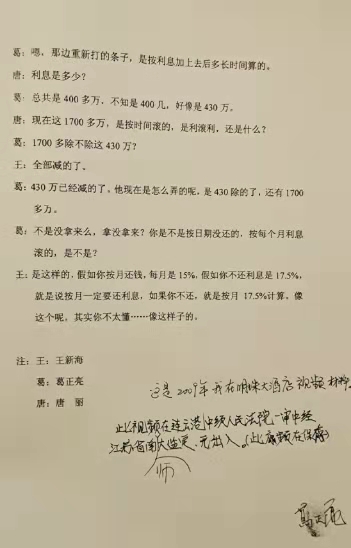 葛：嗯，那边重新打的条子，是按利息加上去后多长时间算的。
唐：利息是多少？
葛：总共是 400 多万，不知是 400 几，好像是 430 万。
唐：现在这 1700 多万，是按时间滚的，是利滚利，还是什么？
葛：1700 多除不除这 430 万？
王：全部减的了。
葛：430 万已经减的了，他现在是怎么弄的呢，是 430 除的了，还有 1700
多万。
葛：不是没拿来么，拿没拿来？你是不是按日期没还的，按每个月利息
滚的，是不是？
王：是这样的，假如你按月还钱，每月是 15%，假如你不还利息是 17.5%，
就是说按月一定要还利息，如果你不还，就是按月 17.5%计算，像
这个呢，其实你不太懂……像这样子的。
注：王：王新海
葛：葛正亮
唐：唐　丽
这是2009年我在明珠大酒店视频材料
此视频在连云港中级人民法院一审中经
江苏省南大监定无出入（此原频在保存）
师
葛正亮